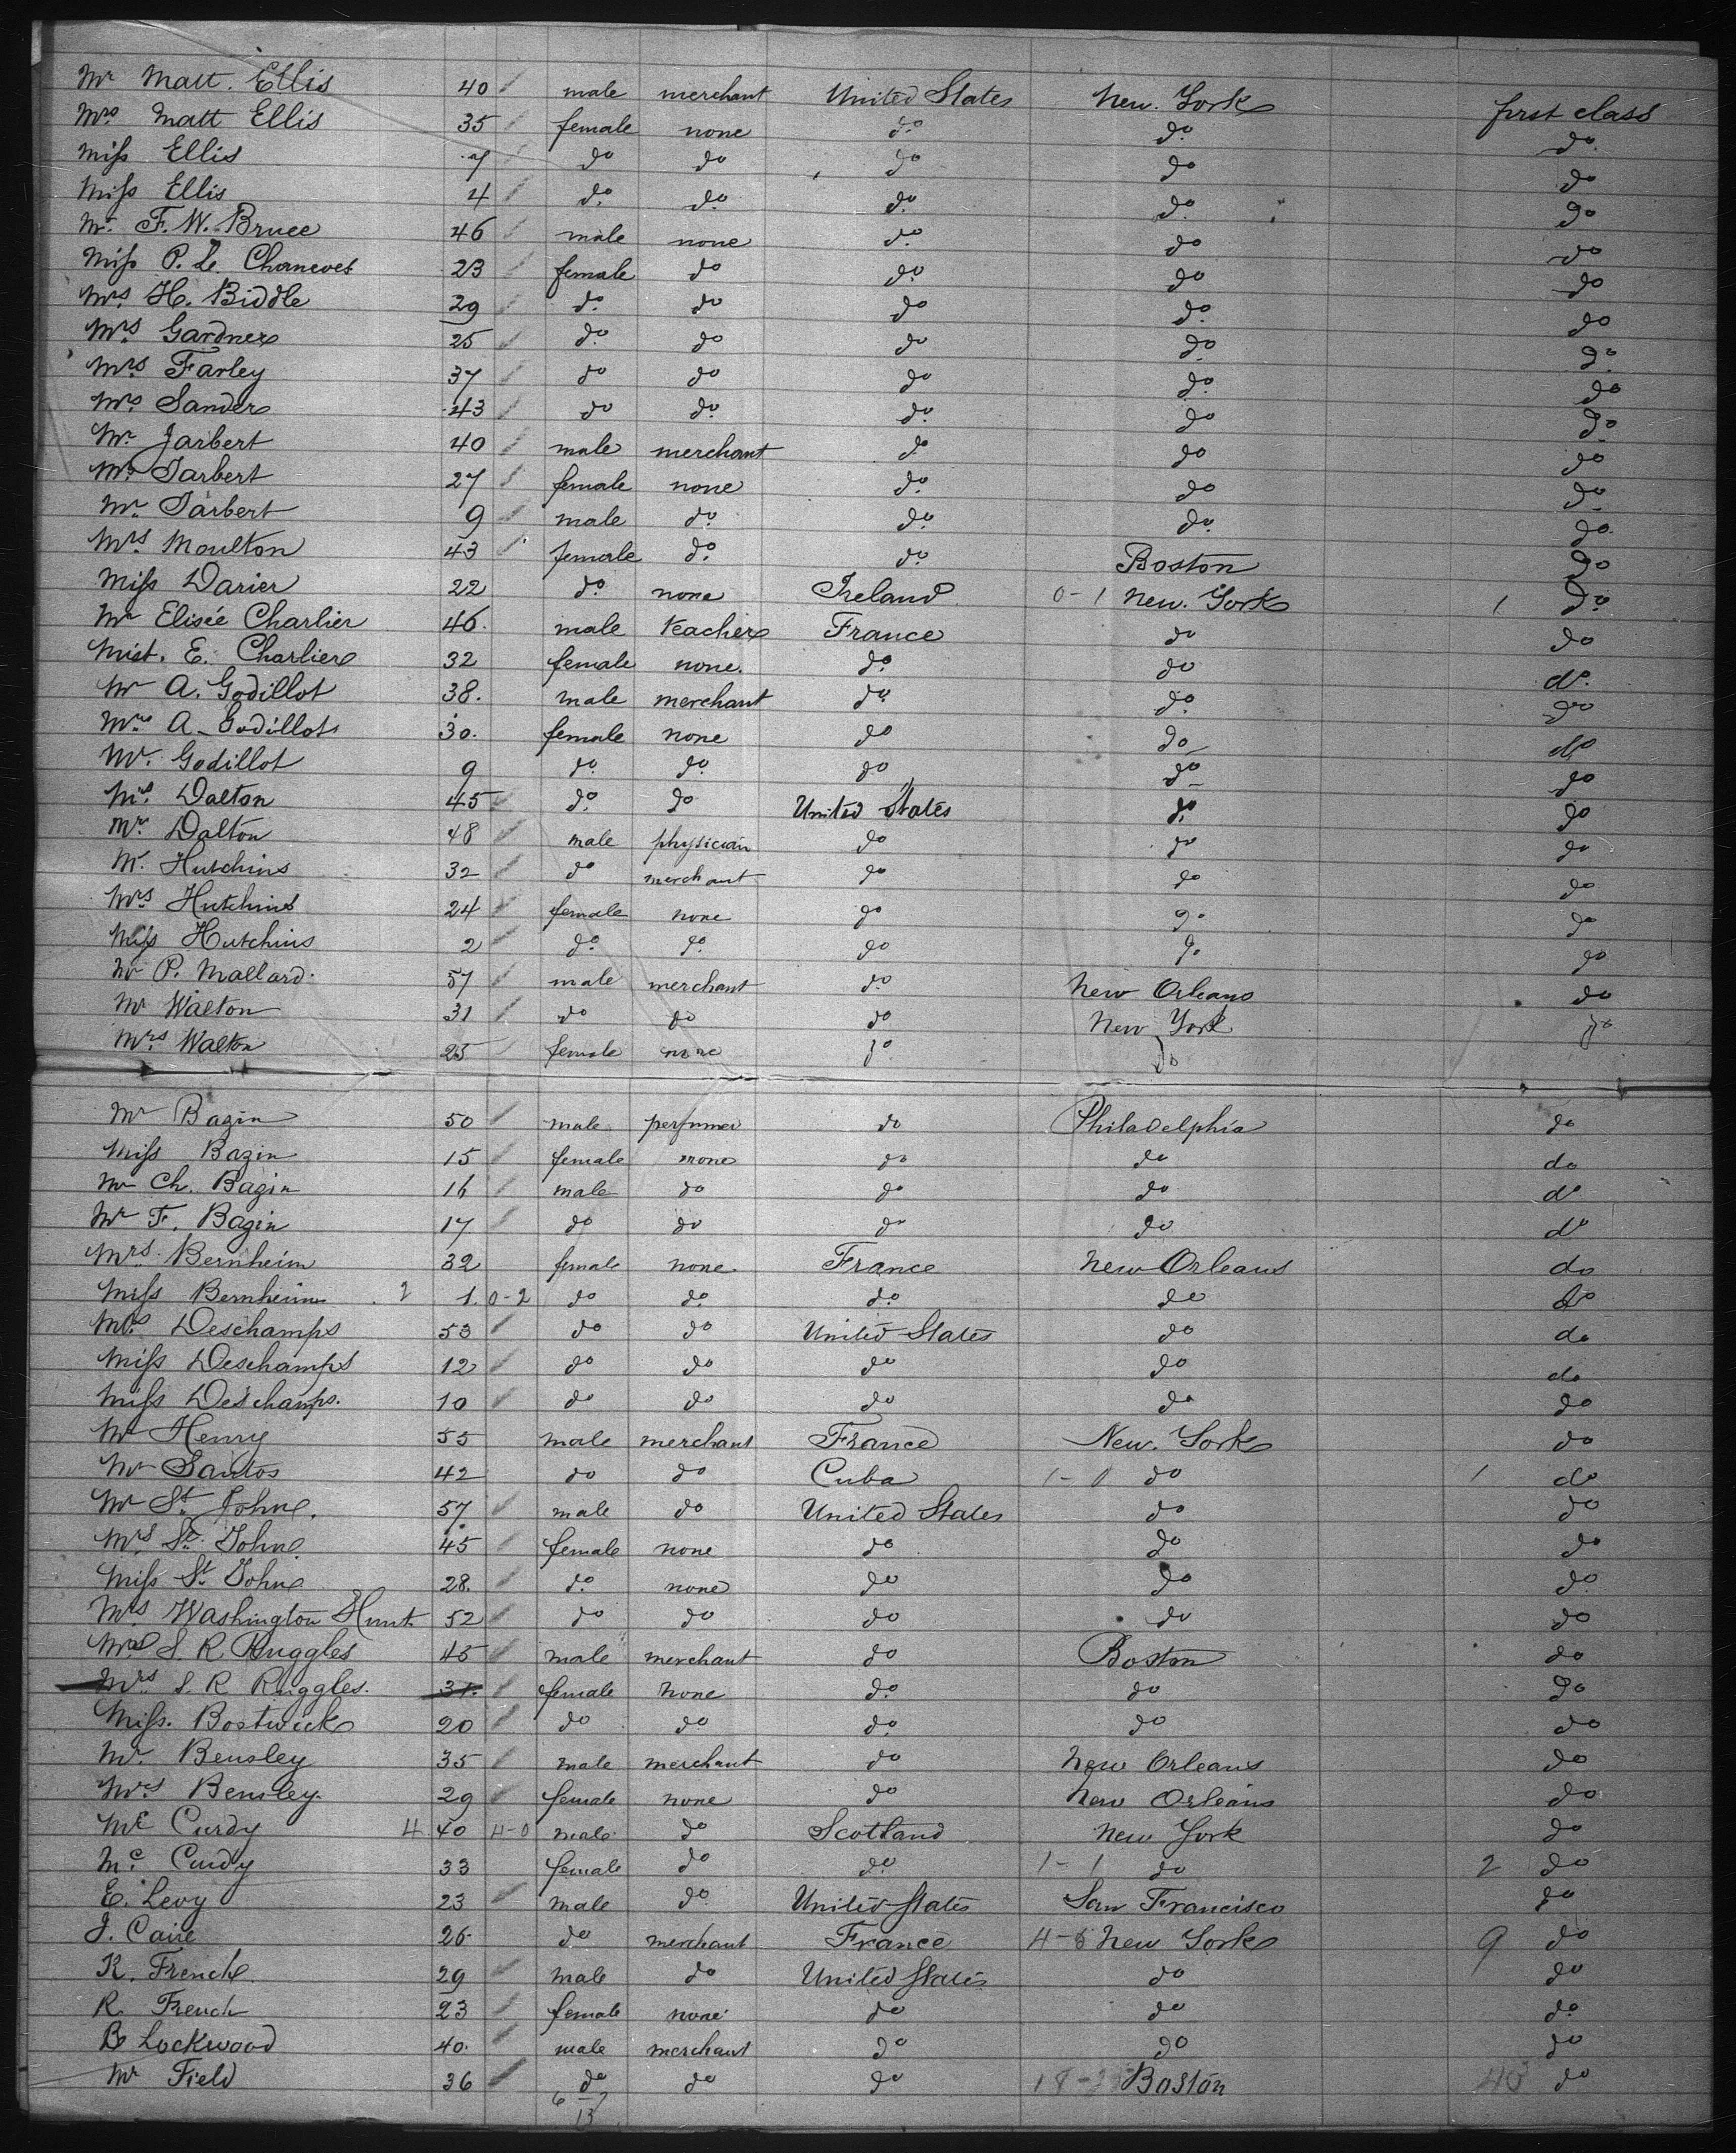 Mr Matt. Ellis 40 male merchant United States New. York first class
Mrs Matt Ellis 35 female none do do do
Miss Ellis 7 do do do do do
Miss Ellis 4 do do do do do
Mr. F. W. Bruce 46 male none do do do
Miss P. Le. 23 female do do do do
Mrs. H. Biddle 29 do do do do do
Mrs Gardner 25 do do do do do
Mrs Farley 37 do do do do do
Mrs Sander 43 do do do do do
Mr. Jarbert 40 male merchant do do do
Mrs Tarbert 27 female none do do do
Mr. Tarbert 9 male do do do do
Mrs. Moulton 43 female do do Boston do
Miss Darier 22 do none Ireland 0-1 New. York 1 do
Mr Elisée Charlier 46. male teacher France do do
Mist. E. Charlier 32 female none. do do do
Mr A. Godillot 38. male merchant do do do
Mrs A. Godillot 30. female none do do do
Mr. Godillot 9 do do do do do
Mrs. Dalton 45 do do United States do do
Mr. Dalton 48 male physician do do do
Mr. Hutchins 32 do merchant do do do
Mrs Hutchins 24 female none do do do
Miss Hutchins 2 do do do do do
Mr P. Mallard. 57 male merchant do New Orleans do
Mr Walton 31 do do do New York do
Mrs Walton 25 female none do do
Mr Bazin 50 male perfumer do Philadelphia do
Miss Bazin 15 female none do do do
Mr Ch. Bazin 16 male do do do do
Mr F. Bazin 17 do do do do do
Mrs. Bernheim 32 female none France New Orleans do
Miss Bernheim 2 1. 0-2 do do do do do
Mrs Deschamps 53 do do United States do do
Miss Deschamps 12 do do do do do
Miss Deschamps. 10 do do do do do
Mr Henry 55 male merchant France New. York do
Mr Santos 42 do do Cuba 1-0 do 1 do
Mr St. John. 57 male do United States do do
Mrs St. John 45 female none do do do
Miss St. John 28. do none do do do
Mrs Washington Hunt 52 do do do do do
Mr S. R. Ruggles 45 male merchant do Boston do
Mrs. S. R Ruggles. 31. female none do do do
Miss. Bostwick 20 do do do do do
Mr. Bensley 35 male merchant do New Orleans do
Mrs Bensley. 29 female none do New Orleans do
Mc Curdy 4 40 4-0 male do Scotland New York do
Mc. Curdy 33 female do do 1-1 do 2 do
E. Levy 23 male do United States San Francisco do
J. Caire 26 do merchant France New York 9 do
R. French 29 male do United States do do
R. French 23 female none do do do
B Lockwood 40. male merchant do do do
Mr Field 36 do do do Boston do
6 7
13